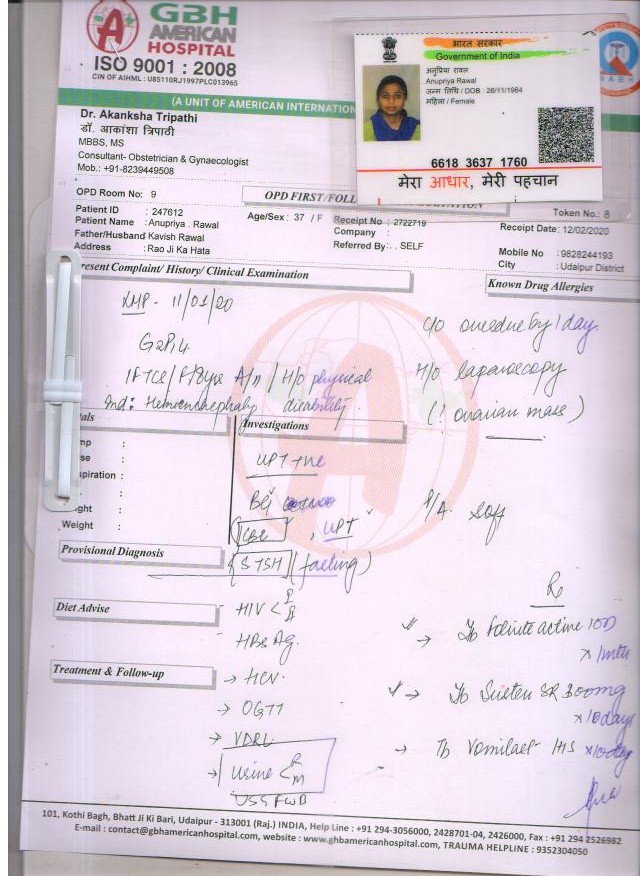 GBH
AMERICAN
HOSPITAL
ISO 9001 : 2008
CIN OF AIHML : U85110RJ1997PLC013965
(A UNIT OF AMERICAN INTERNATION
भारत सरकार
Government of India
अनुप्रिया रावल
Anupriya Rawal
जन्म तिथि / DOB : 26/11/1984
महिला / Female
6618 3637 1760
मेरा आधार, मेरी पहचान
Dr. Akanksha Tripathi
डॉ. आकांशा त्रिपाठी
MBBS, MS
Consultant- Obstetrician & Gynaecologist
Mob.: +91-8239449508
OPD Room No: 9
OPD FIRST/FOLL
Token No.: 8
Patient ID : 247612
Age/Sex : 37 / F
Receipt No : 2722719
Receipt Date: 12/02/2020
Patient Name : Anupriya . Rawal
Company :
Father/Husband Kavish Rawal
Referred By: . SELF
Mobile No : 9828244193
Address : Rao Ji Ka Hata
City : Udaipur District
resent Complaint/ History/ Clinical Examination
Known Drug Allergies
LMP - 11/01/20
c/o overdue by 1 day
G2P1L1
H/o laparoscopy
H/o physical
disability
(? ovarian mass)
tals
Investigations
mp :
UPT +ve
se :
spiration :
:
ght :
P/A. soft
Weight :
CBC, UPT
Provisional Diagnosis
S TSH (fasting)
Rx
Diet Advise
HIV
→ Tb Folinite active 1OD
x 1mth
HBsAg
Treatment & Follow-up
→ HCV
→ Tb Susten SR 300mg
x 10days
→ OGTT
→ VDRL
→ Tb Vomilast HS x 10day
→ Urine < R M
USG FWB
101, Kothi Bagh, Bhatt Ji Ki Bari, Udaipur - 313001 (Raj.) INDIA, Help Line : +91 294-3056000, 2428701-04, 2426000, Fax : +91 294 2526982
E-mail : contact@gbhamericanhospital.com, website : www.gbhamericanhospital.com, TRAUMA HELPLINE : 9352304050